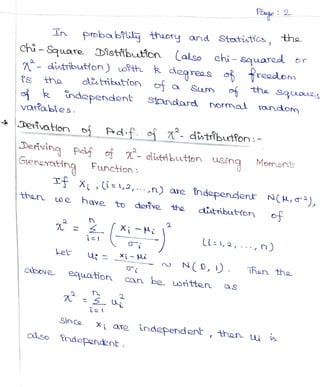 Page: 2
In probability theory and Statistics, the
Chi-Square Distribution (also chi-squared or
χ²- distribution) with k degrees of freedom
is the distribution of a sum of the squares
of k independent standard normal random
variables.
* Derivation of P.d.f. of χ²- distribution:-
Deriving pdf of χ²- distribution using Moment
Generating Function:
If Xi, (i=1,2,...,n) are independent N(μ,σ²),
then we have to derive the distribution of
χ² = Σ(i=1 to n) (Xi-μi / σi)² (i=1,2,...,n)
Let ui = Xi-μi / σi ~ N(0,1). Then the
above equation can be written as
χ² = Σ(i=1 to n) ui²
Since Xi are independent, then ui is
also independent.